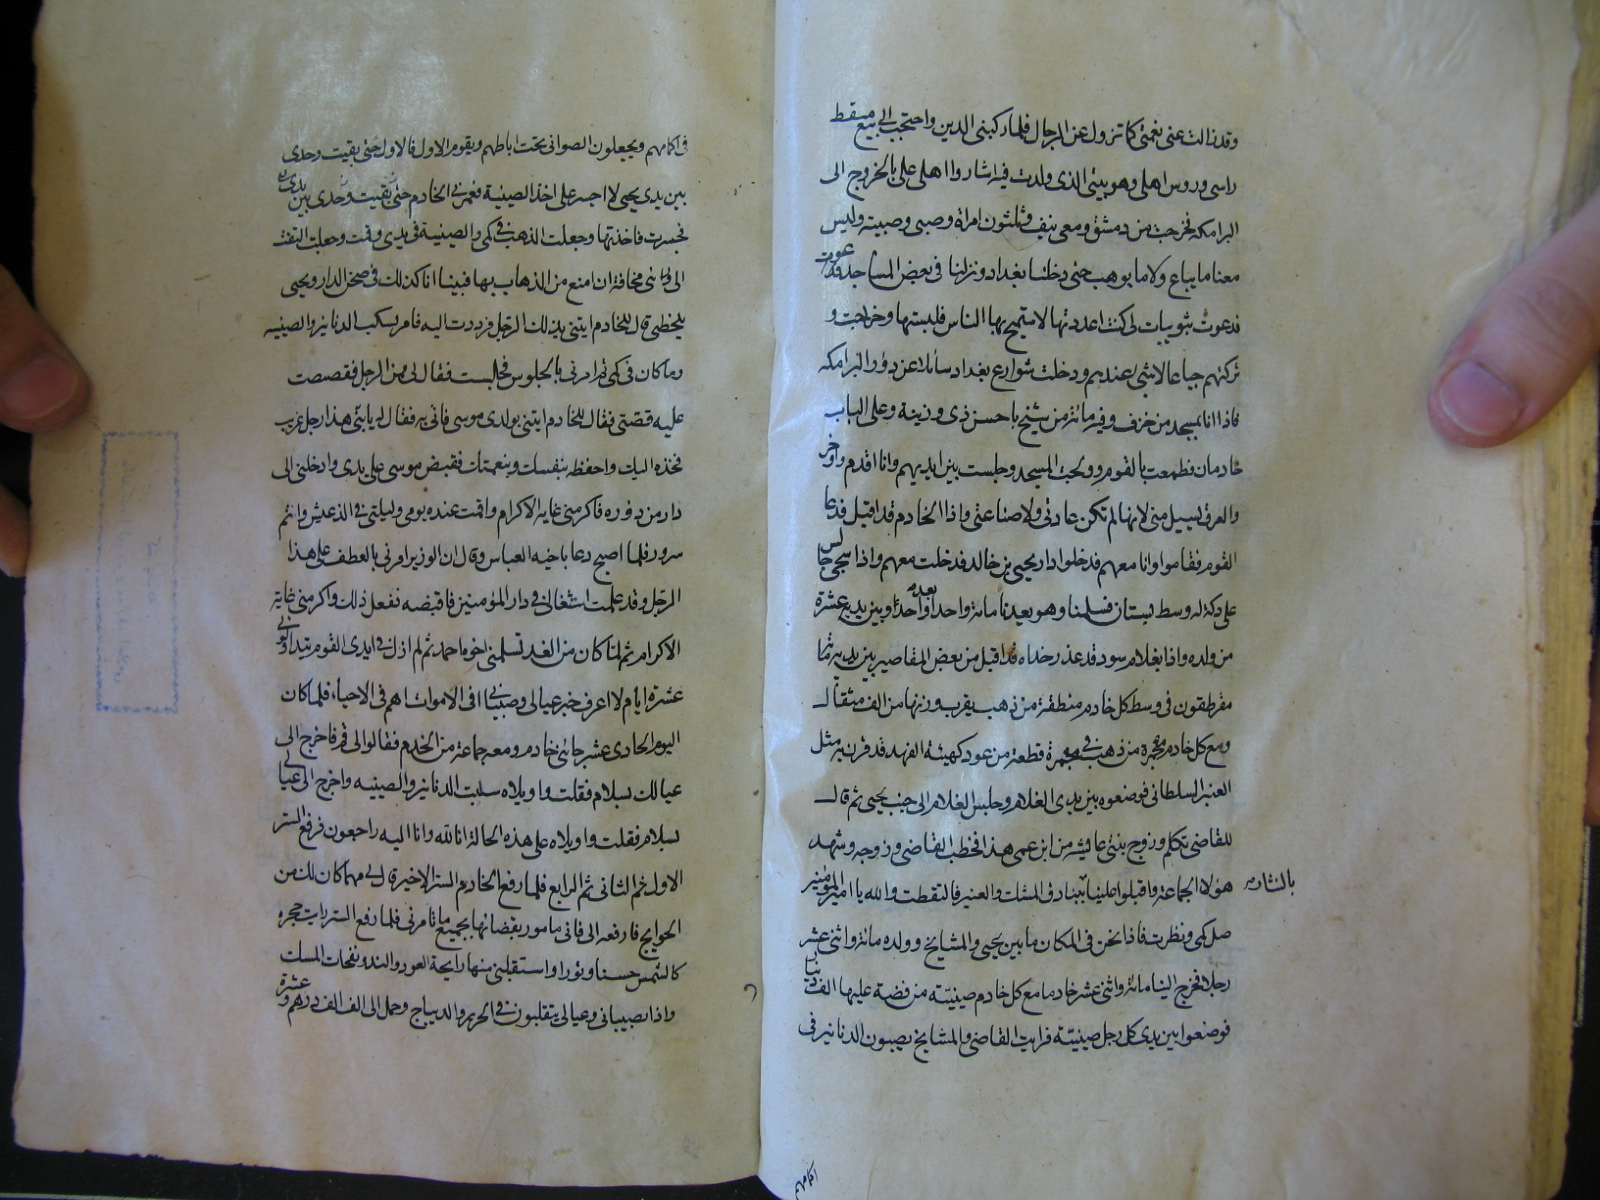 وقد زالت عنى نعمتى كما تزول عن الرجال فلما ركبنى الدين واحتجت الى بيع مسقط
راسى وروس اهلى وهو بيتى الذى ولدت فيه اشاروا اهلى على بالخروج الى
البرامكه فخرجت من دمشق ومعى نيف وثلثون امراة وصبى وصبية وليس
معنا ما يباع ولا ما يوهب حتى دخلنا بغداد ونزلنا فى بعض المساجد
فدعوت بثويبات لى كنت اعددتها لاستميح بها الناس فلبستها وخرجت و
تركتهم جياعا لا شى عندهم ودخلت شوارع بغداد سائلا عن دور البرامكه
فاذا انا بمسجد مزخرف وفيه مائة من شيخ باحسن زى وزينة وعلى الباب
خادمان فطمعت بالقوم وولجت المسجد وجلست بين ايديهم وانا اقدم واوخر
والعرق يسيل منى لانها لم تكن عادتى ولا صناعتى واذا الخادم قد اقبل فدعا
القوم فقاموا وانا معهم فدخلوا دار يحيى بن خالد فدخلت معهم واذا يحيى جالس
على دكة له وسط بستان فسلمنا وهو يعدنا مائة واحدا بعد واحد وبين يديه عشرة
من ولده واذا بغلام سود قد عذر خداه قد اقبل من بعض المقاصير بين يديه
مقرطقون فى وسط كل خادم منطقة من ذهب يقرب وزنها من الف مثقال
ومع كل خادم مجمرة من ذهب فى مجمرة قطعة من عود كهيئة الفهد قد قرن به مثل
العنبر السلطانى فوضعوه بين يدى الغلام وجلس الغلام الى جنب يحيى ثم قال
للقاضى تكلم وزوج بنتى عايشه من ابن عمى هذا فخطب القاضى وزوجه وشهد
هؤلاء الجماعة واقبلوا علينا ببنادق المسك والعنبر فالتقطت والله يا امير المؤمنير
بالنثار
صل كمى ونظرت فاذا نحن فى المكان ما بين يحيى والمشايخ وولده مائة واثنى عشر
رجلا فخرج الينا مائة واثنى عشر خادما مع كل خادم صينيته من فضة عليها الف دينا
فوضعوا بين يدى كل رجل صينيته فرايت القاضى والمشايخ يصبون الدنانير فى
اكمامهم
فى اكمامهم ويجعلون الصوانى تحت اباطهم ويقوم الاول فالاول حتى بقيت وحدى
بين يدى يحيى لا اجسر على اخذ الصينية فغمزنى الخادم حتى بقيت وحدى بين يدى
فجسرت فاخذتها وجعلت الذهب فى كمى والصينية فى يدى وقمت وجعلت التفت
الى ورائى مخافة ان امنع من الذهاب بها فبينا انا كذلك فى صحن الدار ويحيى
يلحظنى قال للخادم ايتنى بذلك الرجل فرددت اليه فامر بسكب الدنانير والصينيه
وما كان فى كمى ثم امرنى بالجلوس فجلست فقال لى ممن الرجل فقصصت
عليه قصتى فقال للخادم ايتنى بولدى موسى فاتى به فقال له يا بنى هذا رجل غريب
فخذه اليك واحفظه بنفسك وبنعمتك فقبض موسى على يدى وادخلنى الى
دار من دوره فاكرمنى غاية الاكرام واقمت عنده يومى وليلتى فى الذ عيش واتم
سرور فلما اصبح دعا باخيه العباس وقال ان الوزير امرنى بالعطف على هذا
الرجل وقد علمت اشتغالى فى دار المؤمنين فاقبضه ففعل ذلك واكرمنى غاية
الاكرام ثم لما كان من الغد تسلمنى اخوه احمد ثم لم ازل فى ايدى القوم يتداولونى
عشرة ايام لا اعرف خبر عيالى وصبيانى افى الاموات هم فى الاحياء فلما كان
اليوم الحادى عشر جائنى خادم ومعه جماعة من الخدم فقالوا لى قم فاخرج الى
عيالك بسلام فقلت واويلاه سلبت الدنانير والصينيه واخرج الى عيالى
بسلام فقلت واويلاه على هذه الحالة انا لله وانا اليه راجعون فرفع الستر
الاول ثم الثانى ثم الرابع فلما رفع الخادم الستر الاخيرة لى مهما كان لك من
الحوايج فارفعه الى فانى مامور بقضائها بجميع ما تامرنى فلما رفع الستر رايت حجرو
كالشمس حسنا ونورا واستقبلنى منها رايحة العود والند ونفحات المسك
واذا بصبيانى وعيالى يتقلبون فى الحرير والديباج وحمل الى الف الف درهم وعشرة